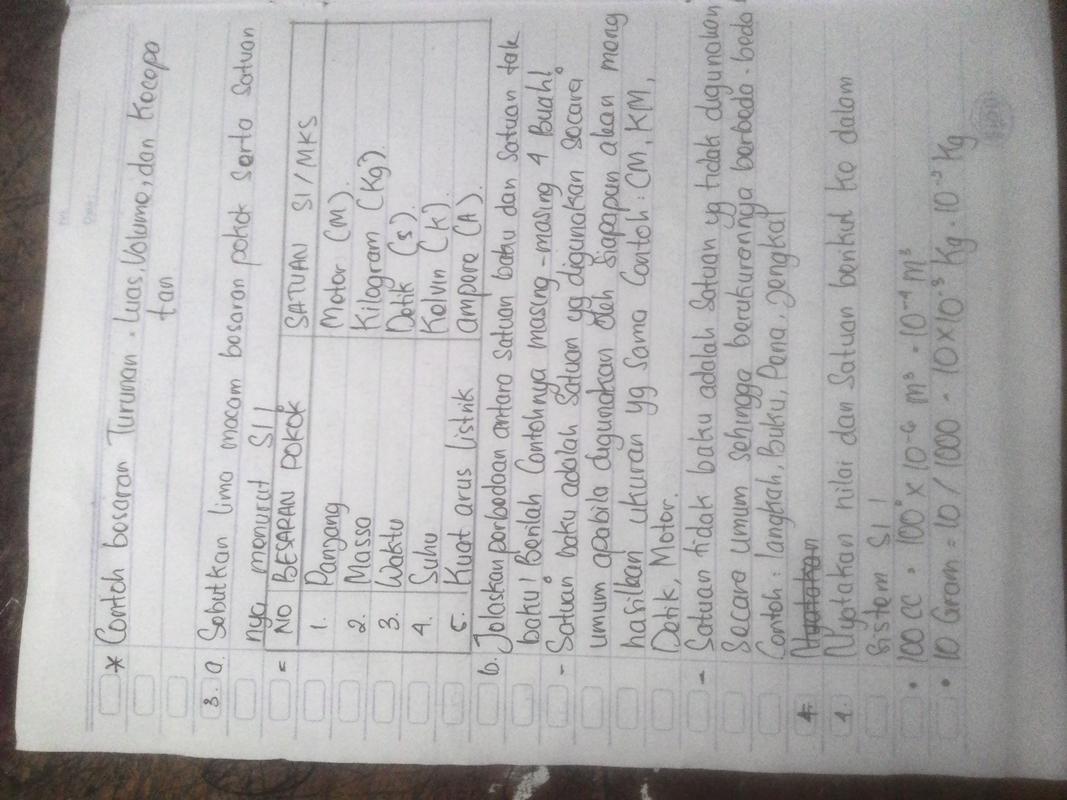 * Contoh besaran Turunan = Luas, Volume, dan Kecepa
tan
3. a. Sebutkan lima macam besaran pokok serta Satuan
nya menurut SI !
= NO BESARAN POKOK SATUAN SI/MKS
1. Panjang Meter (M).
2. Massa Kilogram (Kg).
3. Waktu Detik (s).
4. Suhu Kelvin (K).
5. Kuat arus listrik ampere (A).
b. Jelaskan perbedaan antara Satuan baku dan Satuan tak
baku! Berilah Contohnya masing-masing 4 Buah!
- Satuan baku adalah Satuan yg digunakan Secara
umum apabila digunakan oleh Siapapun akan meng
hasilkan ukuran yg Sama Contoh : CM, KM,
Detik, Meter.
- Satuan tidak baku adalah Satuan yg tidak digunakan
Secara umum Sehingga berukurannya berbeda-beda
Contoh : langkah, Buku, Pena, Jengkal
4.
4. Nyatakan nilai dan Satuan berikut ke dalam
Sistem SI !
• 100 CC = 100 × 10⁻⁶ m³ = 10⁻⁴ m³
• 10 Gram = 10/1000 = 10×10⁻³ Kg = 10⁻² Kg